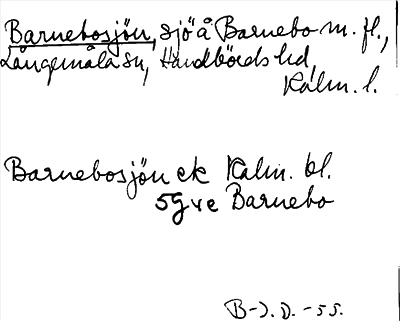 Barnebosjön, sjö å Barnebo m. fl.,
Långemåla sn, Handbörds hd,
Kalm. l.
Barnebosjön ek Kalm. bl.
5 g v e Barnebo
B-J. D. -55.